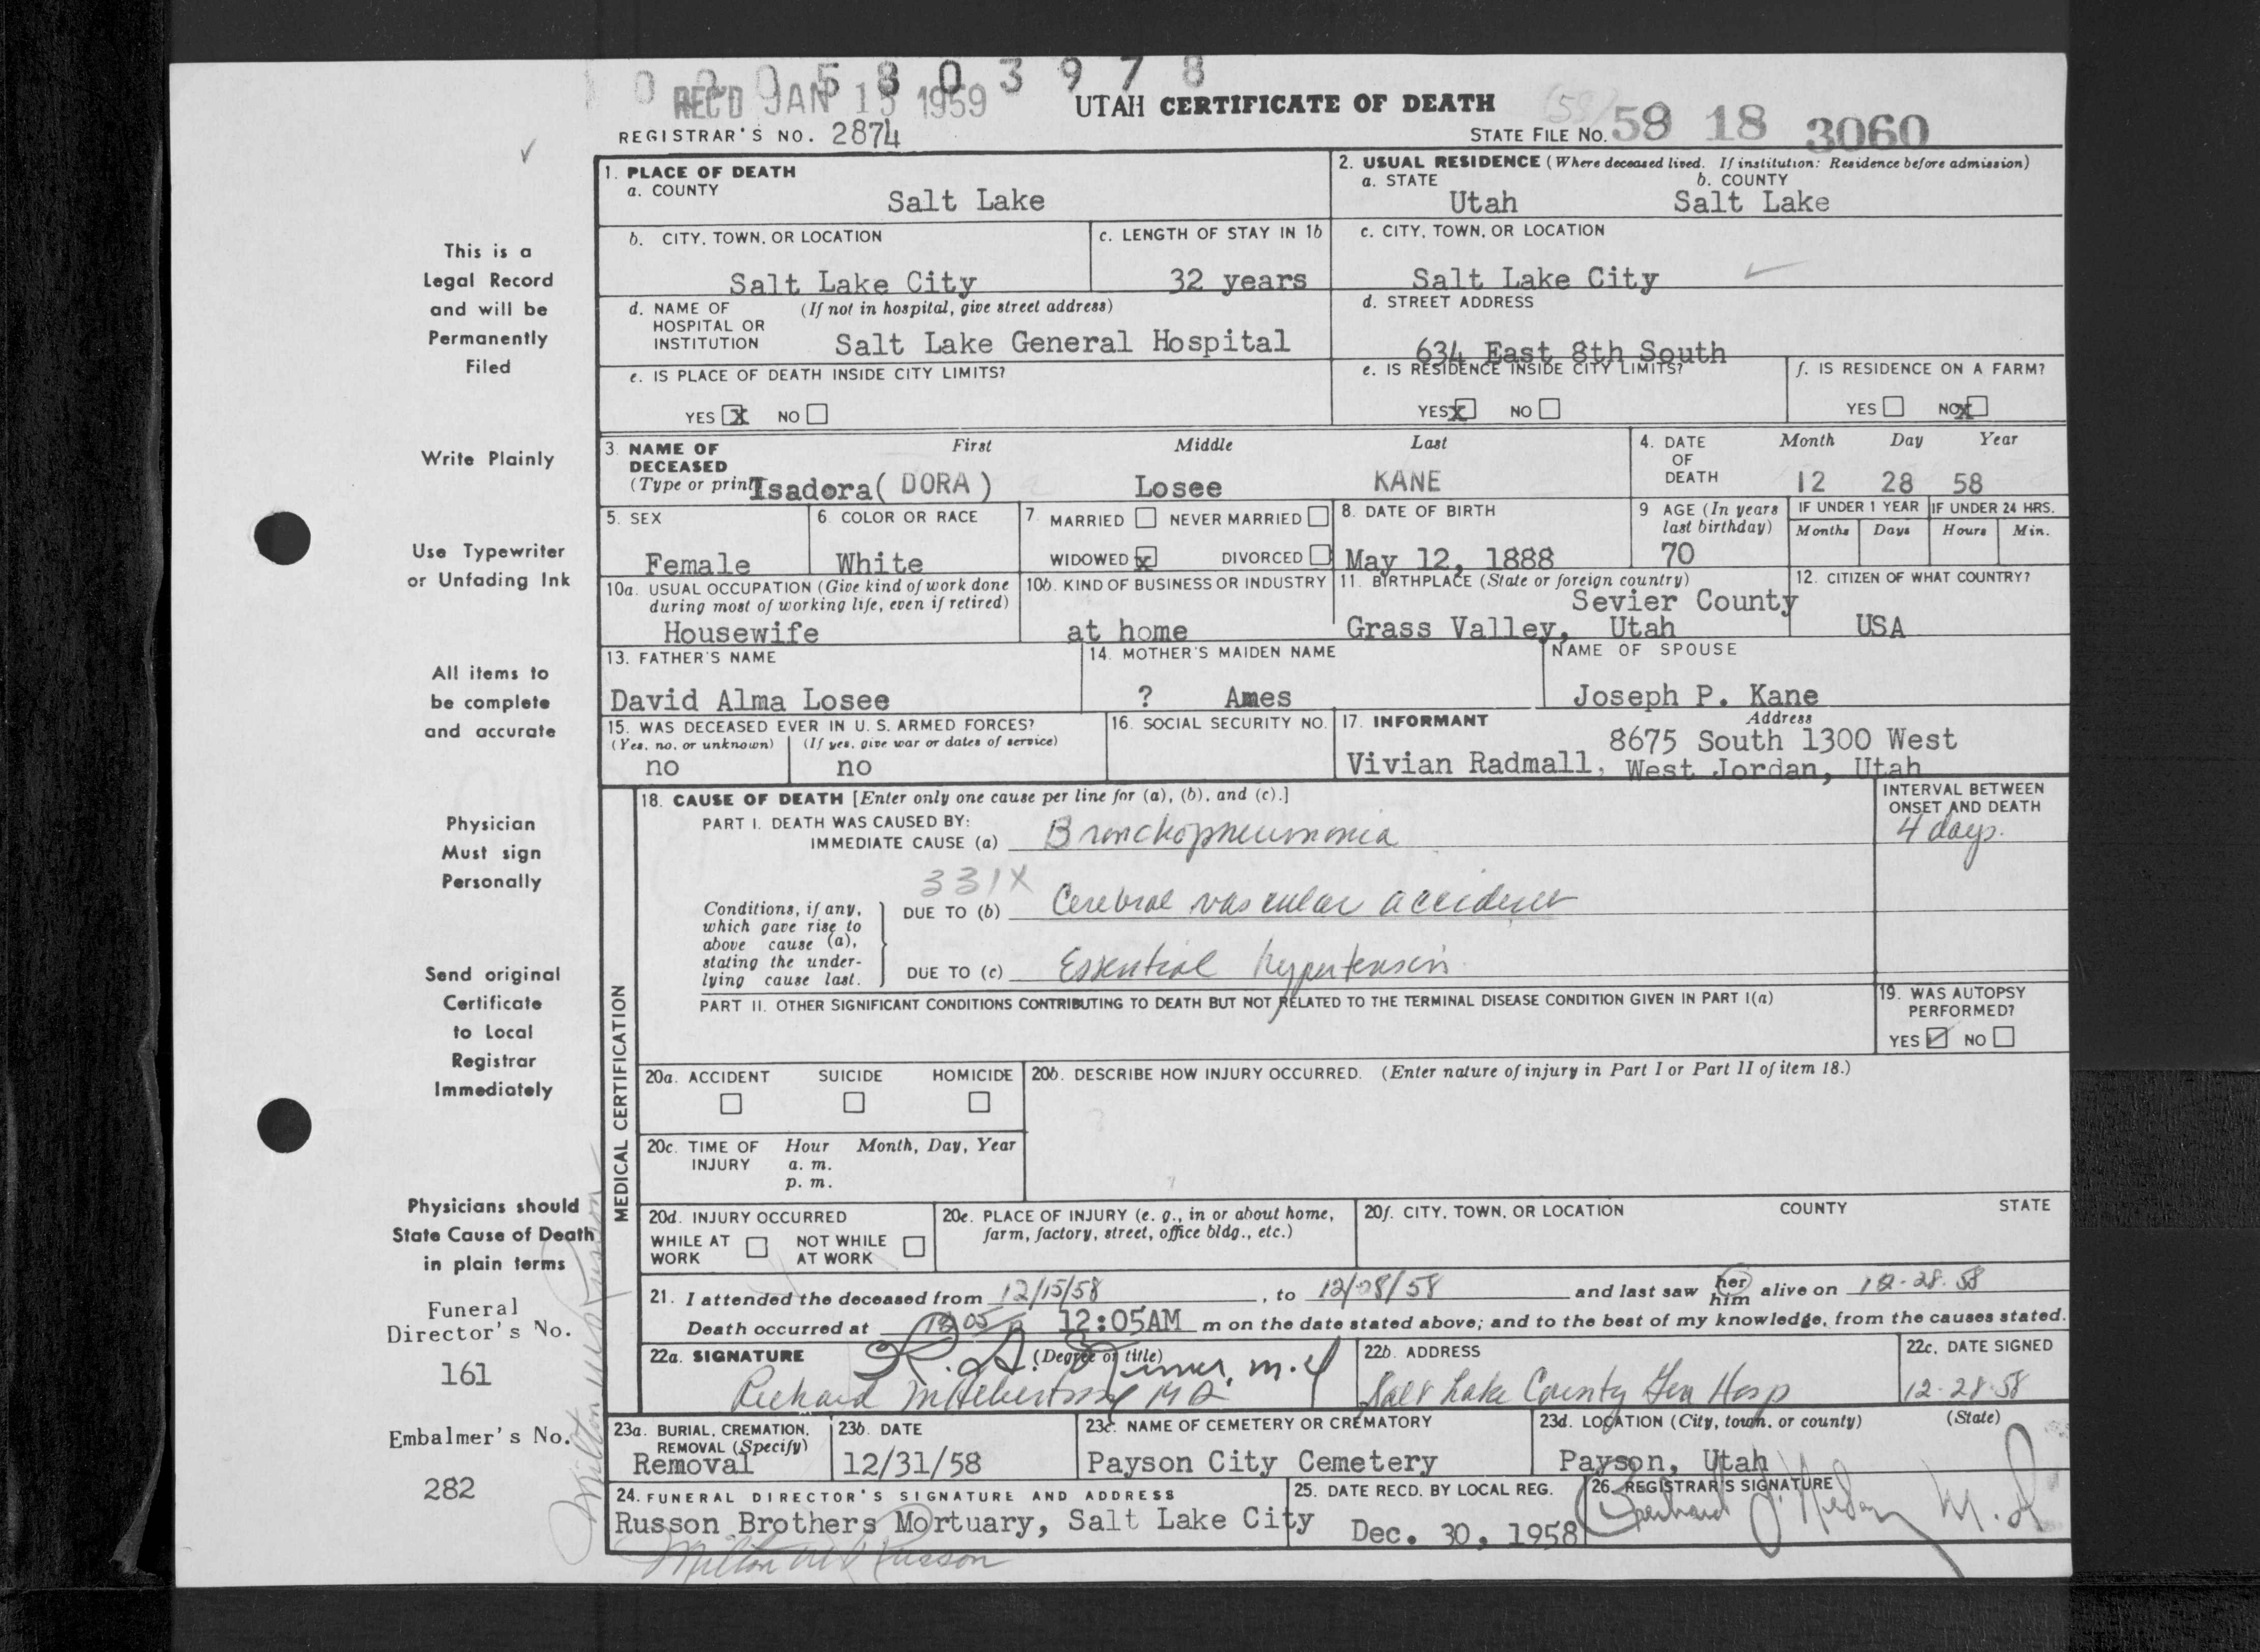 0 2 0 5 8 0 3 9 7 8
REC'D JAN 13 1959
UTAH CERTIFICATE OF DEATH
REGISTRAR'S NO. 2874
STATE FILE No. 58 18 3060
This is a
Legal Record
and will be
Permanently
Filed
Write Plainly
Use Typewriter
or Unfading Ink
All items to
be complete
and accurate
Physician
Must sign
Personally
Send original
Certificate
to Local
Registrar
Immediately
Physicians should
State Cause of Death
in plain terms
Funeral
Director's No.
161
Embalmer's No.
282
1. PLACE OF DEATH
a. COUNTY
Salt Lake
2. USUAL RESIDENCE (Where deceased lived. If institution: Residence before admission)
a. STATE b. COUNTY
Utah Salt Lake
b. CITY, TOWN, OR LOCATION
Salt Lake City
c. LENGTH OF STAY IN 1b
32 years
c. CITY, TOWN, OR LOCATION
Salt Lake City
d. NAME OF (If not in hospital, give street address)
HOSPITAL OR
INSTITUTION Salt Lake General Hospital
d. STREET ADDRESS
634 East 8th South
e. IS PLACE OF DEATH INSIDE CITY LIMITS?
YES X NO
e. IS RESIDENCE INSIDE CITY LIMITS?
YES X NO
f. IS RESIDENCE ON A FARM?
YES NO X
3. NAME OF First Middle Last
DECEASED
(Type or print) Isadora ( DORA ) Losee KANE
4. DATE Month Day Year
OF
DEATH 12 28 58
5. SEX
Female
6. COLOR OR RACE
White
7. MARRIED NEVER MARRIED
WIDOWED X DIVORCED
8. DATE OF BIRTH
May 12, 1888
9 AGE (In years
last birthday)
70
IF UNDER 1 YEAR IF UNDER 24 HRS.
Months Days Hours Min.
10a. USUAL OCCUPATION (Give kind of work done
during most of working life, even if retired)
Housewife
10b. KIND OF BUSINESS OR INDUSTRY
at home
11. BIRTHPLACE (State or foreign country)
Sevier County
Grass Valley, Utah
12. CITIZEN OF WHAT COUNTRY?
USA
13. FATHER'S NAME
David Alma Losee
14. MOTHER'S MAIDEN NAME
? Ames
NAME OF SPOUSE
Joseph P. Kane
15. WAS DECEASED EVER IN U. S. ARMED FORCES?
(Yes, no, or unknown) (If yes, give war or dates of service)
no no
16. SOCIAL SECURITY NO.
17. INFORMANT Address
8675 South 1300 West
Vivian Radmall, West Jordan, Utah
MEDICAL CERTIFICATION
18. CAUSE OF DEATH [Enter only one cause per line for (a), (b), and (c).]
INTERVAL BETWEEN
ONSET AND DEATH
PART I. DEATH WAS CAUSED BY:
IMMEDIATE CAUSE (a) Bronchopneumonia 4 days.
331X
Conditions, if any,
which gave rise to
above cause (a),
stating the under-
lying cause last.
DUE TO (b) Cerebral vascular accident
DUE TO (c) Essential hypertension
PART II. OTHER SIGNIFICANT CONDITIONS CONTRIBUTING TO DEATH BUT NOT RELATED TO THE TERMINAL DISEASE CONDITION GIVEN IN PART I(a)
19. WAS AUTOPSY
PERFORMED?
YES ✓ NO
20a. ACCIDENT SUICIDE HOMICIDE
20b. DESCRIBE HOW INJURY OCCURRED. (Enter nature of injury in Part I or Part II of item 18.)
20c. TIME OF Hour Month, Day, Year
INJURY a. m.
p. m.
20d. INJURY OCCURRED
WHILE AT NOT WHILE
WORK AT WORK
20e. PLACE OF INJURY (e. g., in or about home,
farm, factory, street, office bldg., etc.)
20f. CITY, TOWN, OR LOCATION COUNTY STATE
21. I attended the deceased from 12/15/58, to 12/28/58 and last saw her him alive on 12-28-58
Death occurred at 12:05 12:05AM m on the date stated above; and to the best of my knowledge, from the causes stated.
22a. SIGNATURE (Degree or title)
Richard M.D.
22b. ADDRESS
Salt Lake County Gen Hosp
22c. DATE SIGNED
12-28-58
23a. BURIAL, CREMATION,
REMOVAL (Specify)
Removal
23b. DATE
12/31/58
23c. NAME OF CEMETERY OR CREMATORY
Payson City Cemetery
23d. LOCATION (City, town, or county) (State)
Payson, Utah
24. FUNERAL DIRECTOR'S SIGNATURE AND ADDRESS
Russon Brothers Mortuary, Salt Lake City
Milton W Russon
25. DATE RECD. BY LOCAL REG.
Dec. 30, 1958
26. REGISTRAR'S SIGNATURE
M.D.